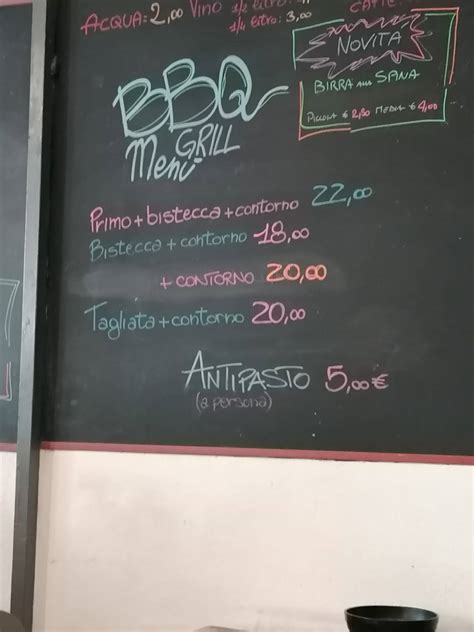 ACQUA: 2,00 Vino 1/2 litro:
1/4 litro: 3,00
NOVITA
BIRRA alla SPINA
PICCOLA € 2,50 MEDIA € 4,00
BBQ
GRILL
Menù
Primo + bistecca + contorno 22,00
Bistecca + contorno 18,00
+ CONTORNO 20,00
Tagliata + contorno 20,00
ANTIPASTO 5,00 €
(a persona)